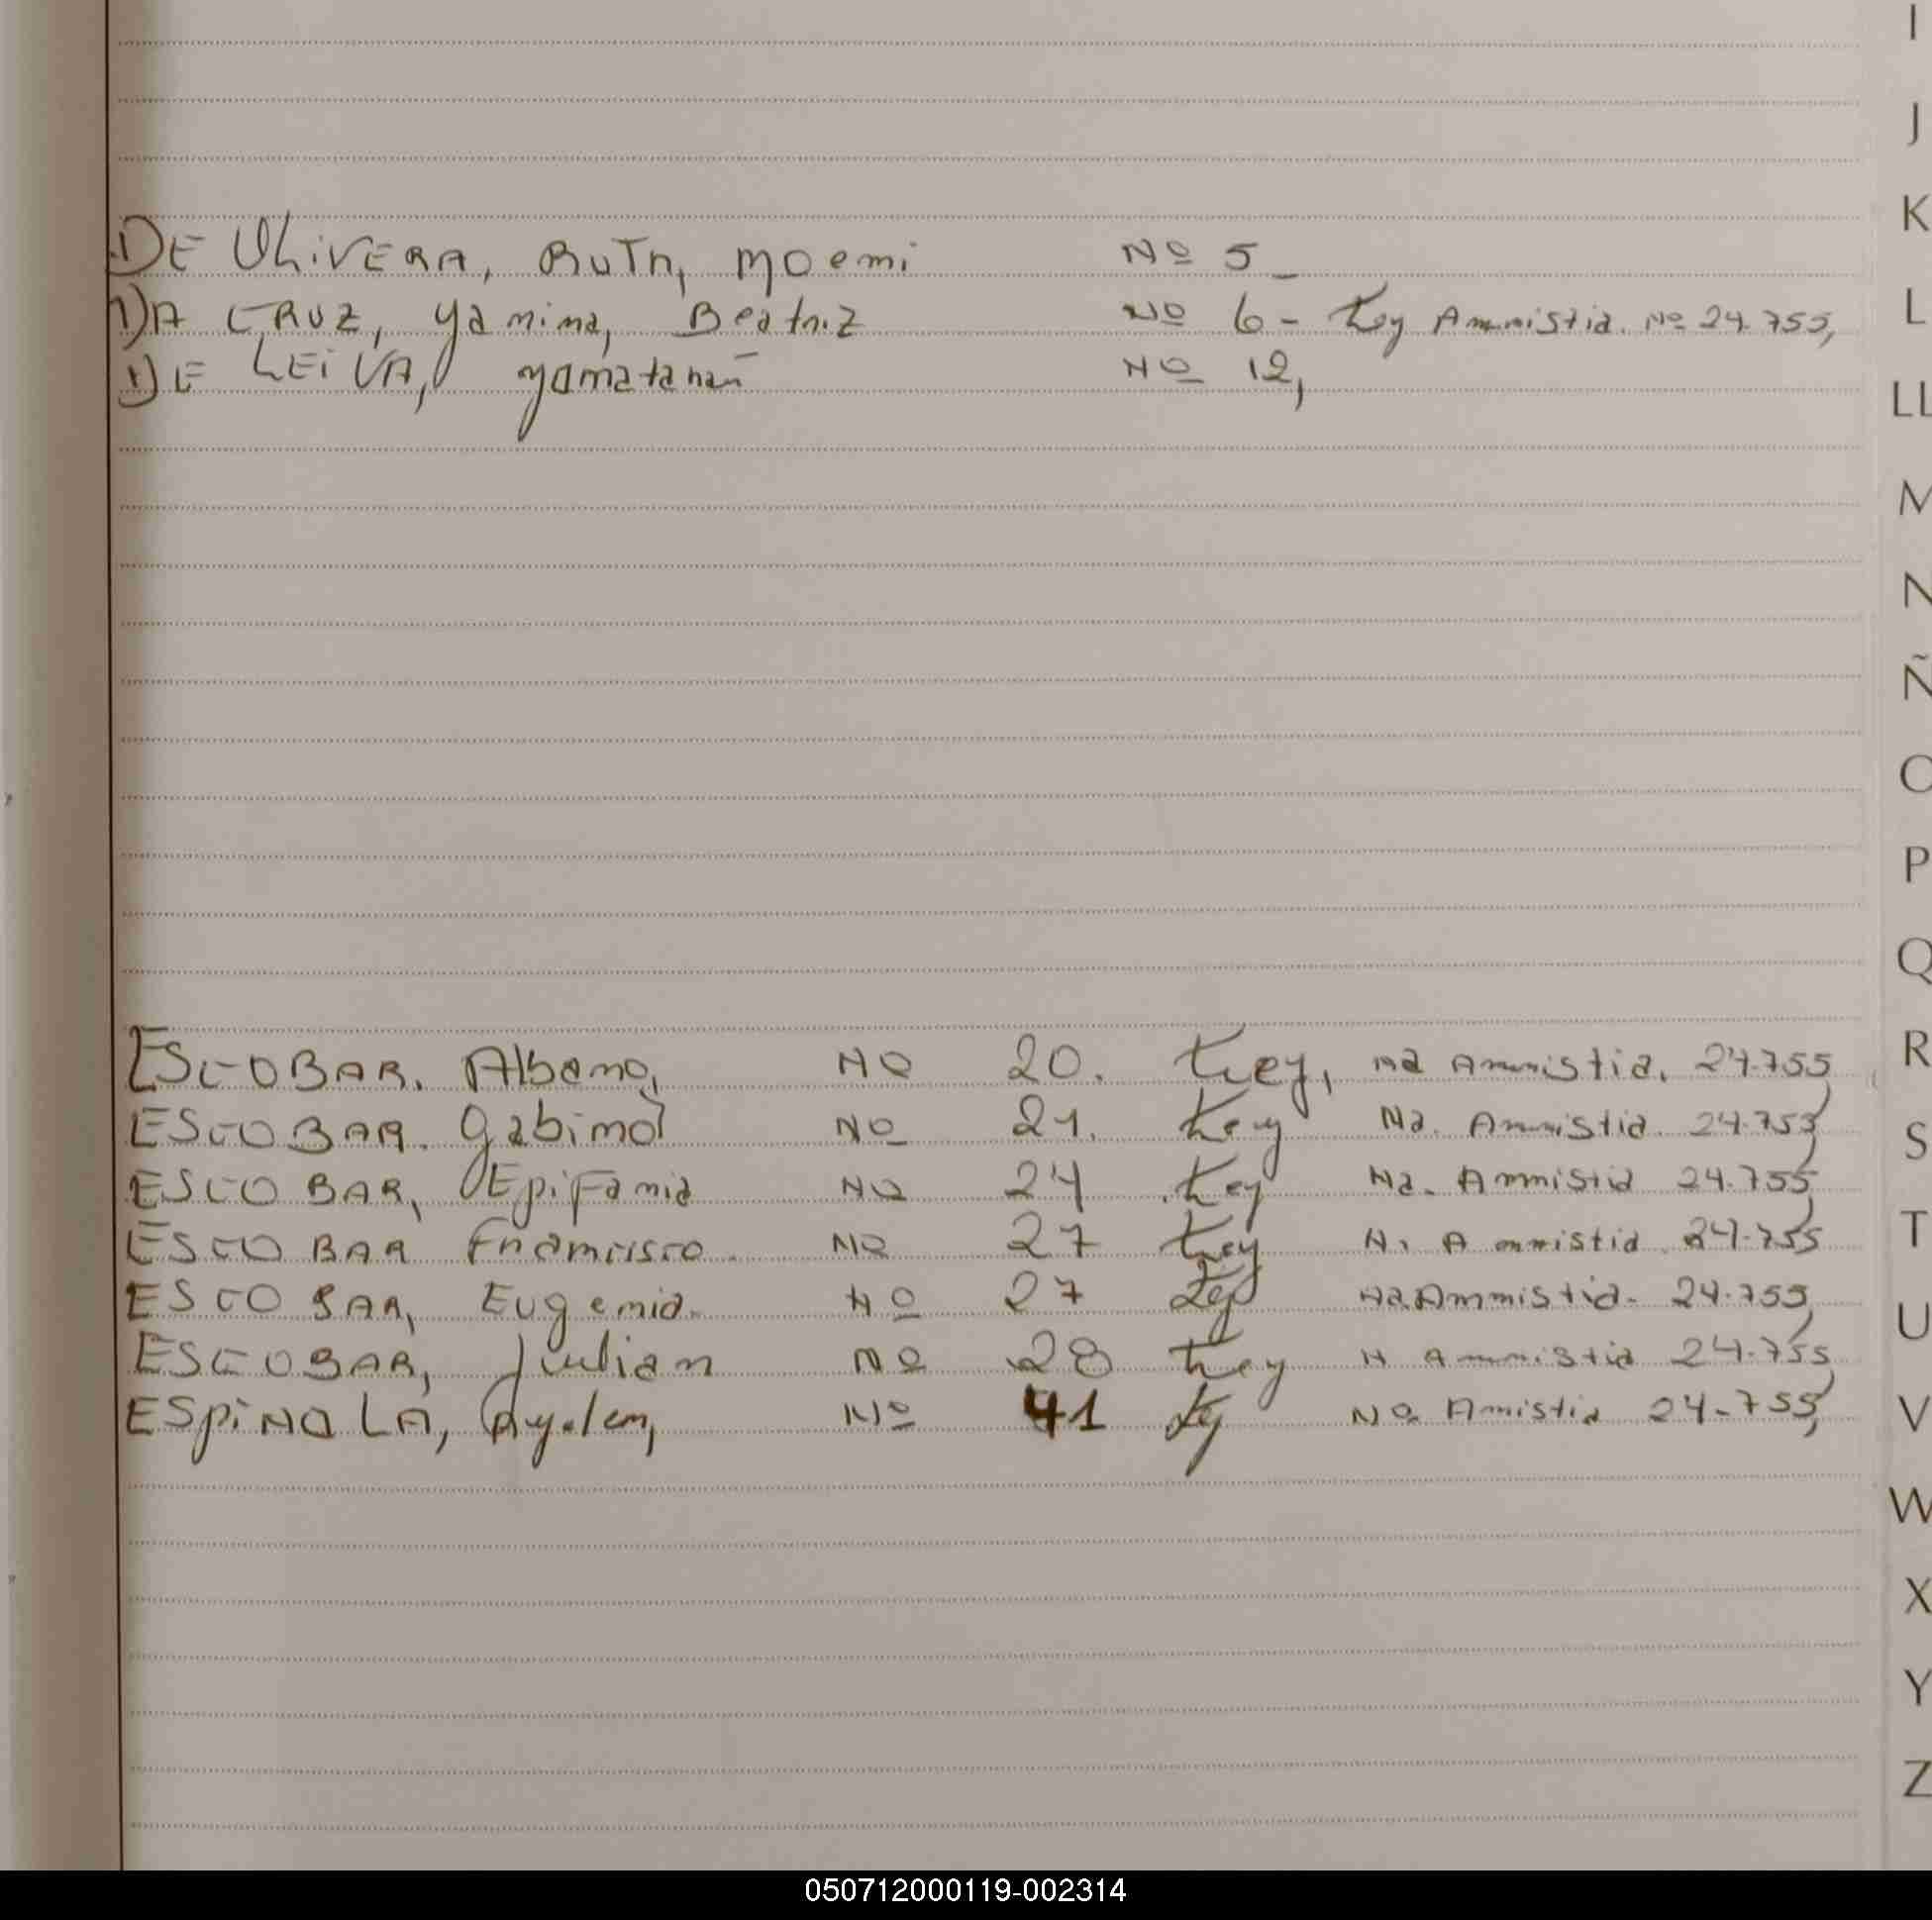 I
J
K
DE OLiVERA, RuTh, Noemi Nº 5_
L
DA CRUZ, Yamima, Beatriz Nº 6 - Ley Amnistia. Nº 24.755,
DE LEiVA, Nº 12,
LL
M
N
Ñ
O
P
Q
R
ESCOBAR. Albano, Nº 20. Ley, Na Amnistia. 24.755
ESCOBAR. Gabino Nº 21. Ley Na. Amnistia. 24.755
S
ESCOBAR, EpiFania Nº 24 Ley Na. Amnistia 24.755
T
ESCOBAR Francisco. Nº 27 Ley N. Amnistia 24.755
ESCOBAR, Eugenia. Nº 27 Ley Na Amnistia. 24.755
U
ESCOBAR, Julian Nº 28 Ley N Amnistia 24.755
V
ESPiNOLA, Ayelen, Nº 41 Ley Nº Amistia 24-755
W
X
Y
Z
050712000119-002314